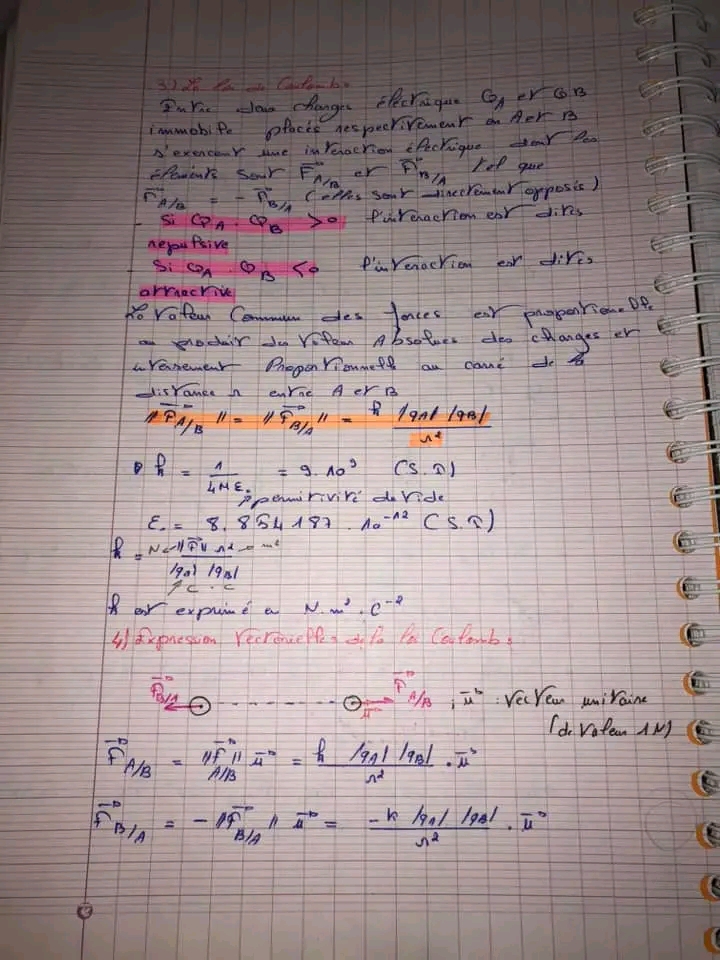 3) La loi de Coulomb.
Entre deux charges électrique QA et QB
immobile placés respectivement en A et B
s'exercent une interaction électrique dont les
éléments sont F⃗A/B et F⃗B/A tel que
F⃗A/B = - F⃗B/A (elles sont directement opposés)
- Si QA . QB > 0 l'interaction est dites
répulsive
- Si QA . QB < 0 l'interaction est dites
attractive
La valeur Commun des forces est proportionelle
au produit des valeur Absolues des charges et
inversement Proportionnelle au carré de la
distance r entre A et B
||F⃗A/B|| = ||F⃗B/A|| = k |qA| |qB| / r²
k = 1 / 4πε. = 9.10⁹ (S.I)
permitivité de vide
ε. = 8.854187.10⁻¹² (S.I)
k = N ← ||F⃗|| r² → m² / |qA| |qB|
C . C
k est exprimé en N.m².C⁻²
4) Expression vectorielles de la loi Coulomb :
F⃗B/A F⃗A/B ; u⃗ : vecteur unitaire
u⃗ (de valeur 1N)
F⃗A/B = ||F⃗A/B|| u⃗ = k |qA| |qB| / r² . u⃗
F⃗B/A = - ||F⃗B/A|| u⃗ = -k |qA| |qB| / r² . u⃗